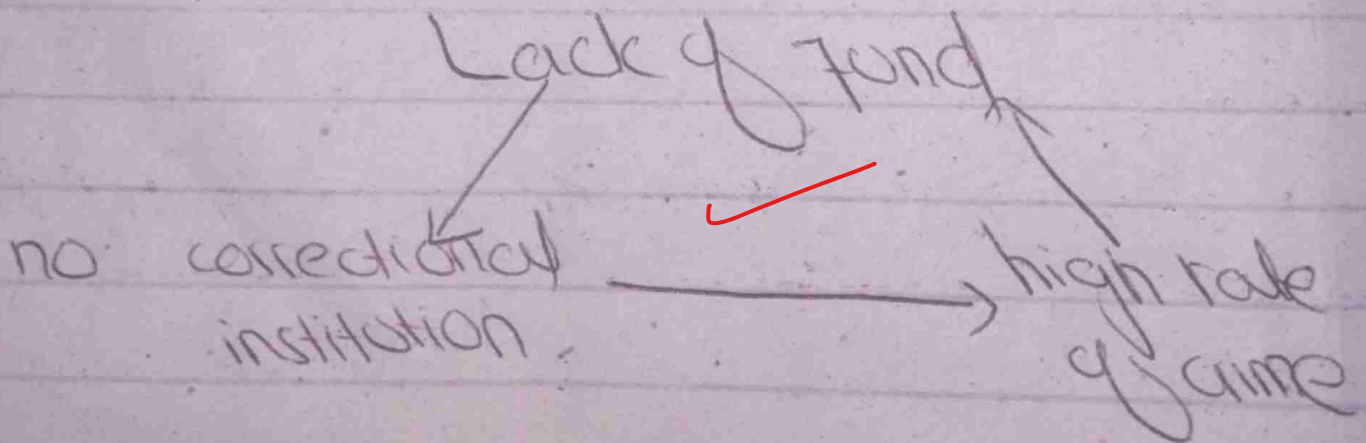 Lack of fund
no correctional
institution.
high rate
of crime